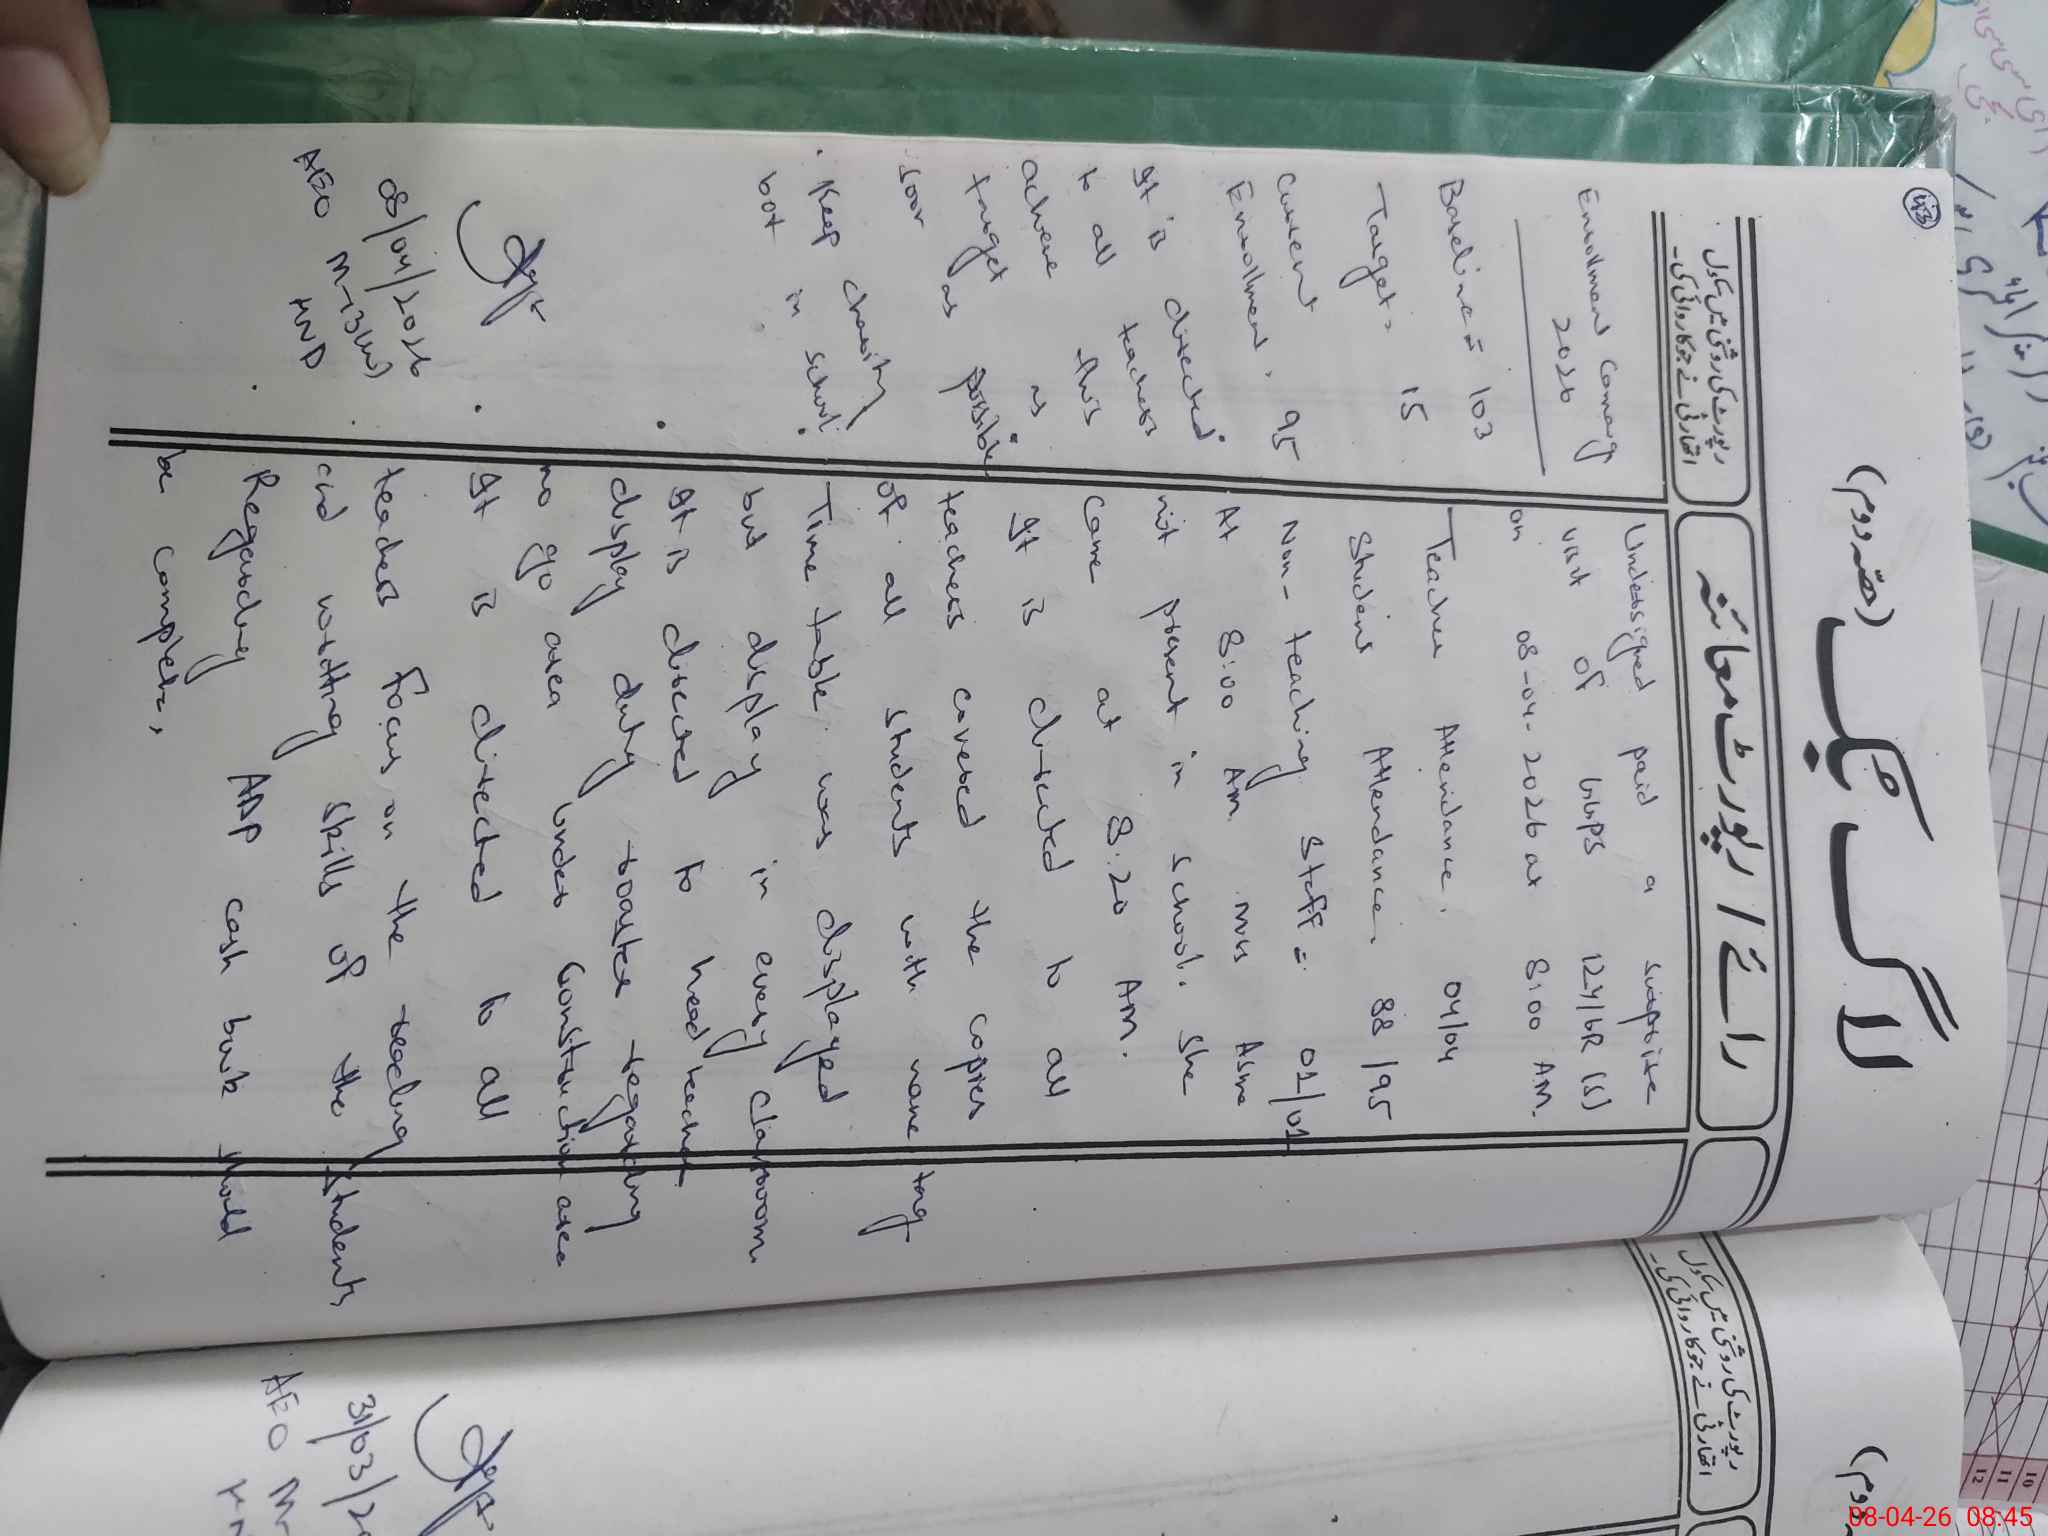 43
لاگ بک (حصّہ دوم)
رائے / رپورٹ معائنہ
Undersigned paid a surprise
visit of GGPS 124/6R (S)
on 08-04-2026 at 8:00 AM.
Teacher Attendance. 04/04
Student Attendance. 88/95
Non-teaching Staff = 01/01
At 8:00 AM Miss Asma
not present in school. She
came at 8:20 AM.
It is directed to all
teachers covered the copies
of all students with name tag
Time table was displayed
but display in every classroom.
It is directed to head teacher
display duty roaster regarding
no go area under construction area
It is directed to all
teachers focus on the reading
and writting skills of the students
Regarding ADP cash book should
be complete.
رپورٹ کی روشنی میں سکول
اتھارٹی نے جو کارروائی کی۔
Enrollment Comaig
2026
Baseline = 103
Target. 15
Current
Enrollment. 95
It is directed
to all teachers
achieve this
target as
soon as possible
• Keep charity
bot in school
08/04/2026
AEO M-13(W)
HND
رپورٹ کی روشنی میں سکول
اتھارٹی نے جو کارروائی کی۔
31/03/20
AEO M-
10
11
12
08-04-26 08:45